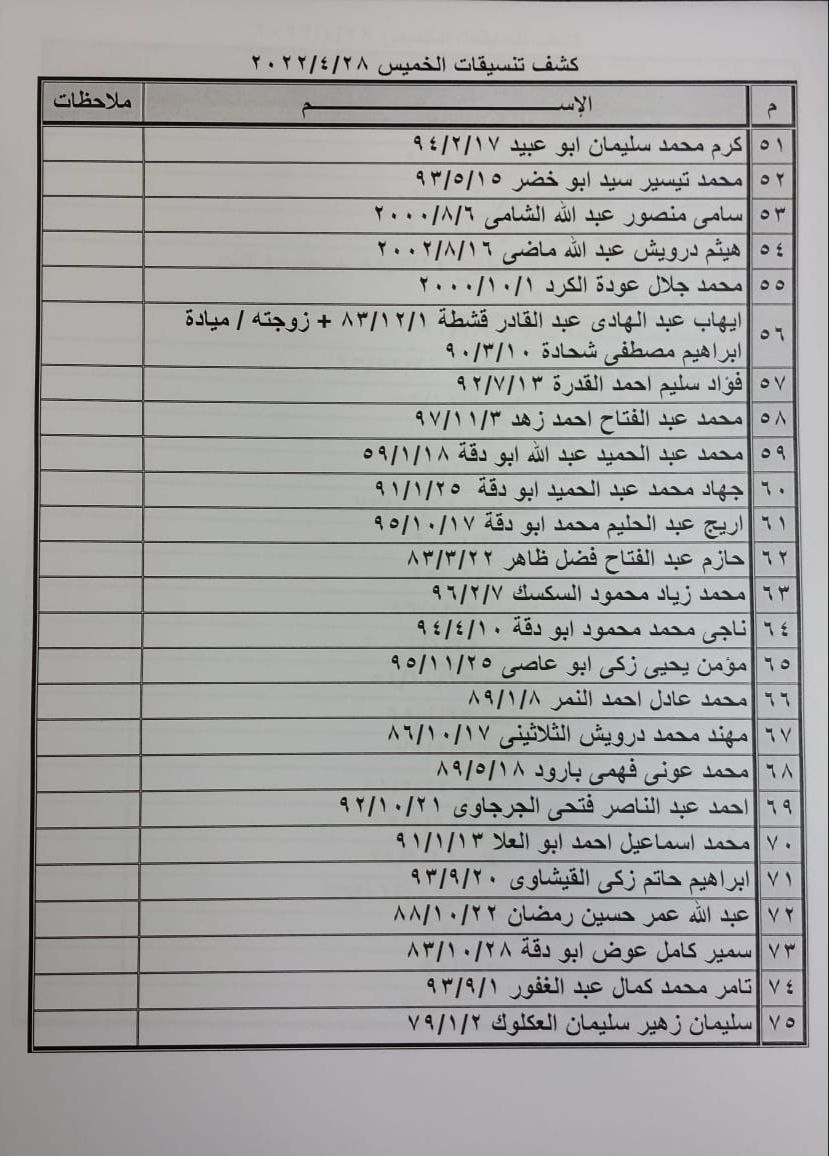 كشف تنسيقات الخميس ٢٠٢٢/٤/٢٨
م الإســـــــــم ملاحظات
٥١ كرم محمد سليمان ابو عبيد ٩٤/٢/١٧
٥٢ محمد تيسير سيد ابو خضر ٩٣/٥/١٥
٥٣ سامى منصور عبد الله الشامى ٢٠٠٠/٨/٦
٥٤ هيثم درويش عبد الله ماضى ٢٠٠٢/٨/١٦
٥٥ محمد جلال عودة الكرد ٢٠٠٠/١٠/١
٥٦ ايهاب عبد الهادى عبد القادر قشطة ٨٣/١٢/١ + زوجته / ميادة
ابراهيم مصطفى شحادة ٩٠/٣/١٠
٥٧ فؤاد سليم احمد القدرة ٩٢/٧/١٣
٥٨ محمد عبد الفتاح احمد زهد ٩٧/١١/٣
٥٩ محمد عبد الحميد عبد الله ابو دقة ٥٩/١/١٨
٦٠ جهاد محمد عبد الحميد ابو دقة ٩١/١/٢٥
٦١ اريج عبد الحليم محمد ابو دقة ٩٥/١٠/١٧
٦٢ حازم عبد الفتاح فضل ظاهر ٨٣/٣/٢٢
٦٣ محمد زياد محمود السكسك ٩٦/٢/٧
٦٤ ناجى محمد محمود ابو دقة ٩٤/٤/١٠
٦٥ مؤمن يحيى زكى ابو عاصى ٩٥/١١/٢٥
٦٦ محمد عادل احمد النمر ٨٩/١/٨
٦٧ مهند محمد درويش الثلاثينى ٨٦/١٠/١٧
٦٨ محمد عونى فهمى بارود ٨٩/٥/١٨
٦٩ احمد عبد الناصر فتحى الجرجاوى ٩٢/١٠/٢١
٧٠ محمد اسماعيل احمد ابو العلا ٩١/١/١٣
٧١ ابراهيم حاتم زكى القيشاوى ٩٣/٩/٢٠
٧٢ عبد الله عمر حسين رمضان ٨٨/١٠/٢٢
٧٣ سمير كامل عوض ابو دقة ٨٣/١٠/٢٨
٧٤ تامر محمد كمال عبد الغفور ٩٣/٩/١
٧٥ سليمان زهير سليمان العكلوك ٧٩/١/٢